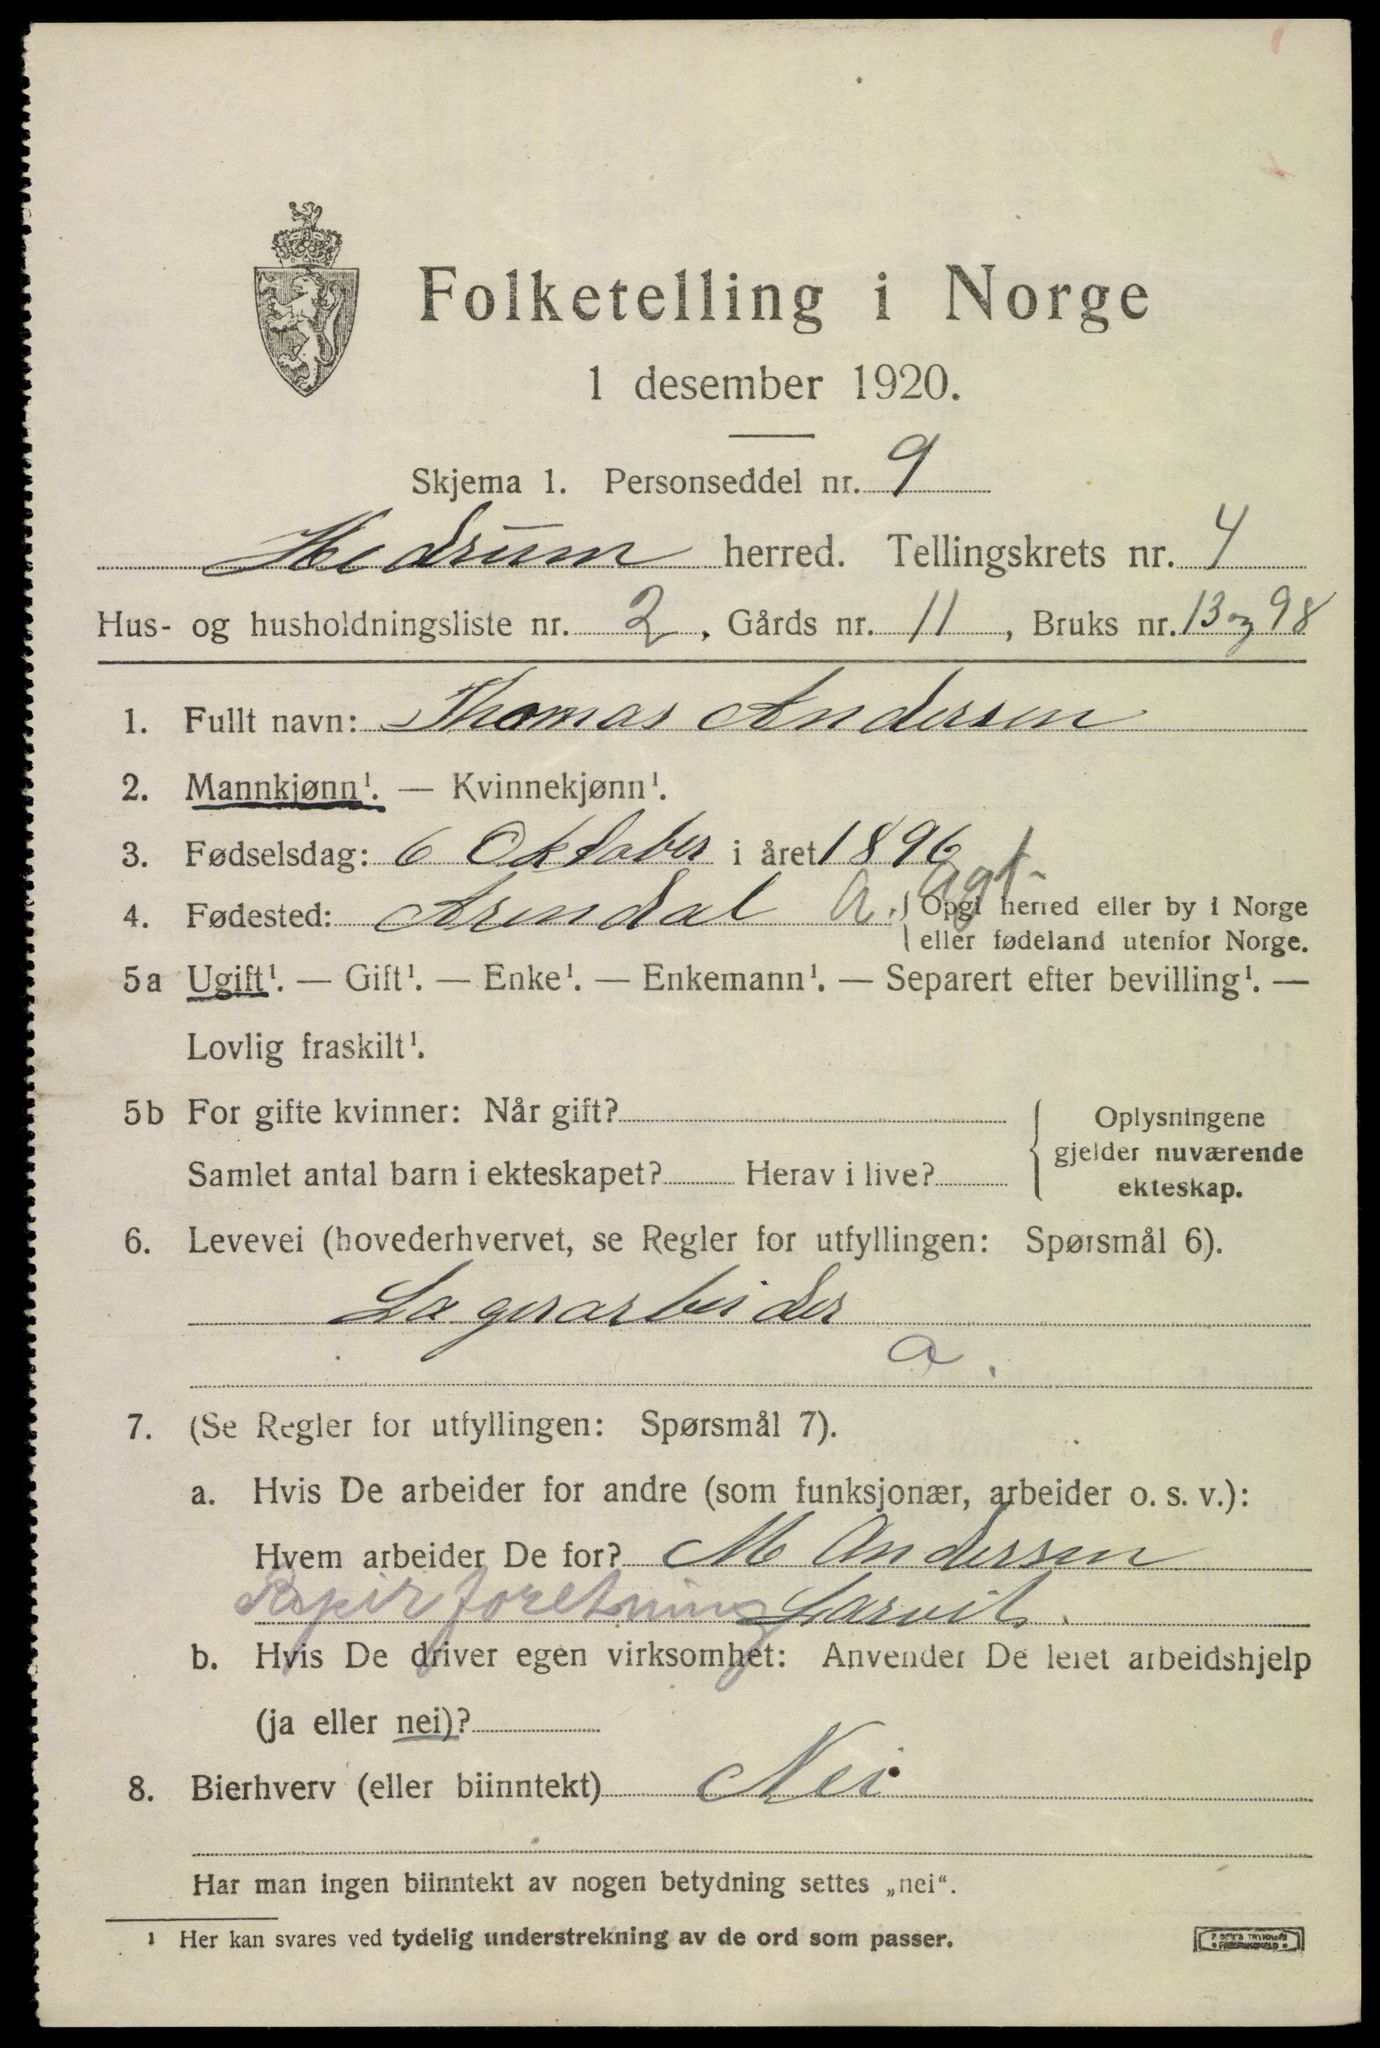 Folketelling i Norge
1 desember 1920.
Skjema 1. Personseddel nr. 9
Hedrum herred. Tellingskrets nr. 4
Hus- og husholdningsliste nr. 2, Gårds nr. 11, Bruks nr. 13 og 98
1. Fullt navn: Thomas Andersen
2. Mannkjønn¹. — Kvinnekjønn¹.
3. Fødselsdag: 6 Oktober i året 1896
4. Fødested: Arendal a. Agt. Opgi herred eller by i Norge
eller fødeland utenfor Norge.
5a Ugift¹. — Gift¹. — Enke¹. — Enkemann¹. — Separert efter bevilling¹. —
Lovlig fraskilt¹.
5b For gifte kvinner: Når gift?
Samlet antal barn i ekteskapet? Herav i live?
Oplysningene
gjelder nuværende
ekteskap.
6. Levevei (hovederhvervet, se Regler for utfyllingen: Spørsmål 6).
Lagerarbeider
a.
7. (Se Regler for utfyllingen: Spørsmål 7).
a. Hvis De arbeider for andre (som funksjonær, arbeider o. s. v.):
Hvem arbeider De for? M Andersen
Papirforetning Larvik
b. Hvis De driver egen virksomhet: Anvender De leiet arbeidshjelp
(ja eller nei)?
8. Bierhverv (eller biinntekt) Nei
Har man ingen biinntekt av nogen betydning settes „nei“.
¹ Her kan svares ved tydelig understrekning av de ord som passer.